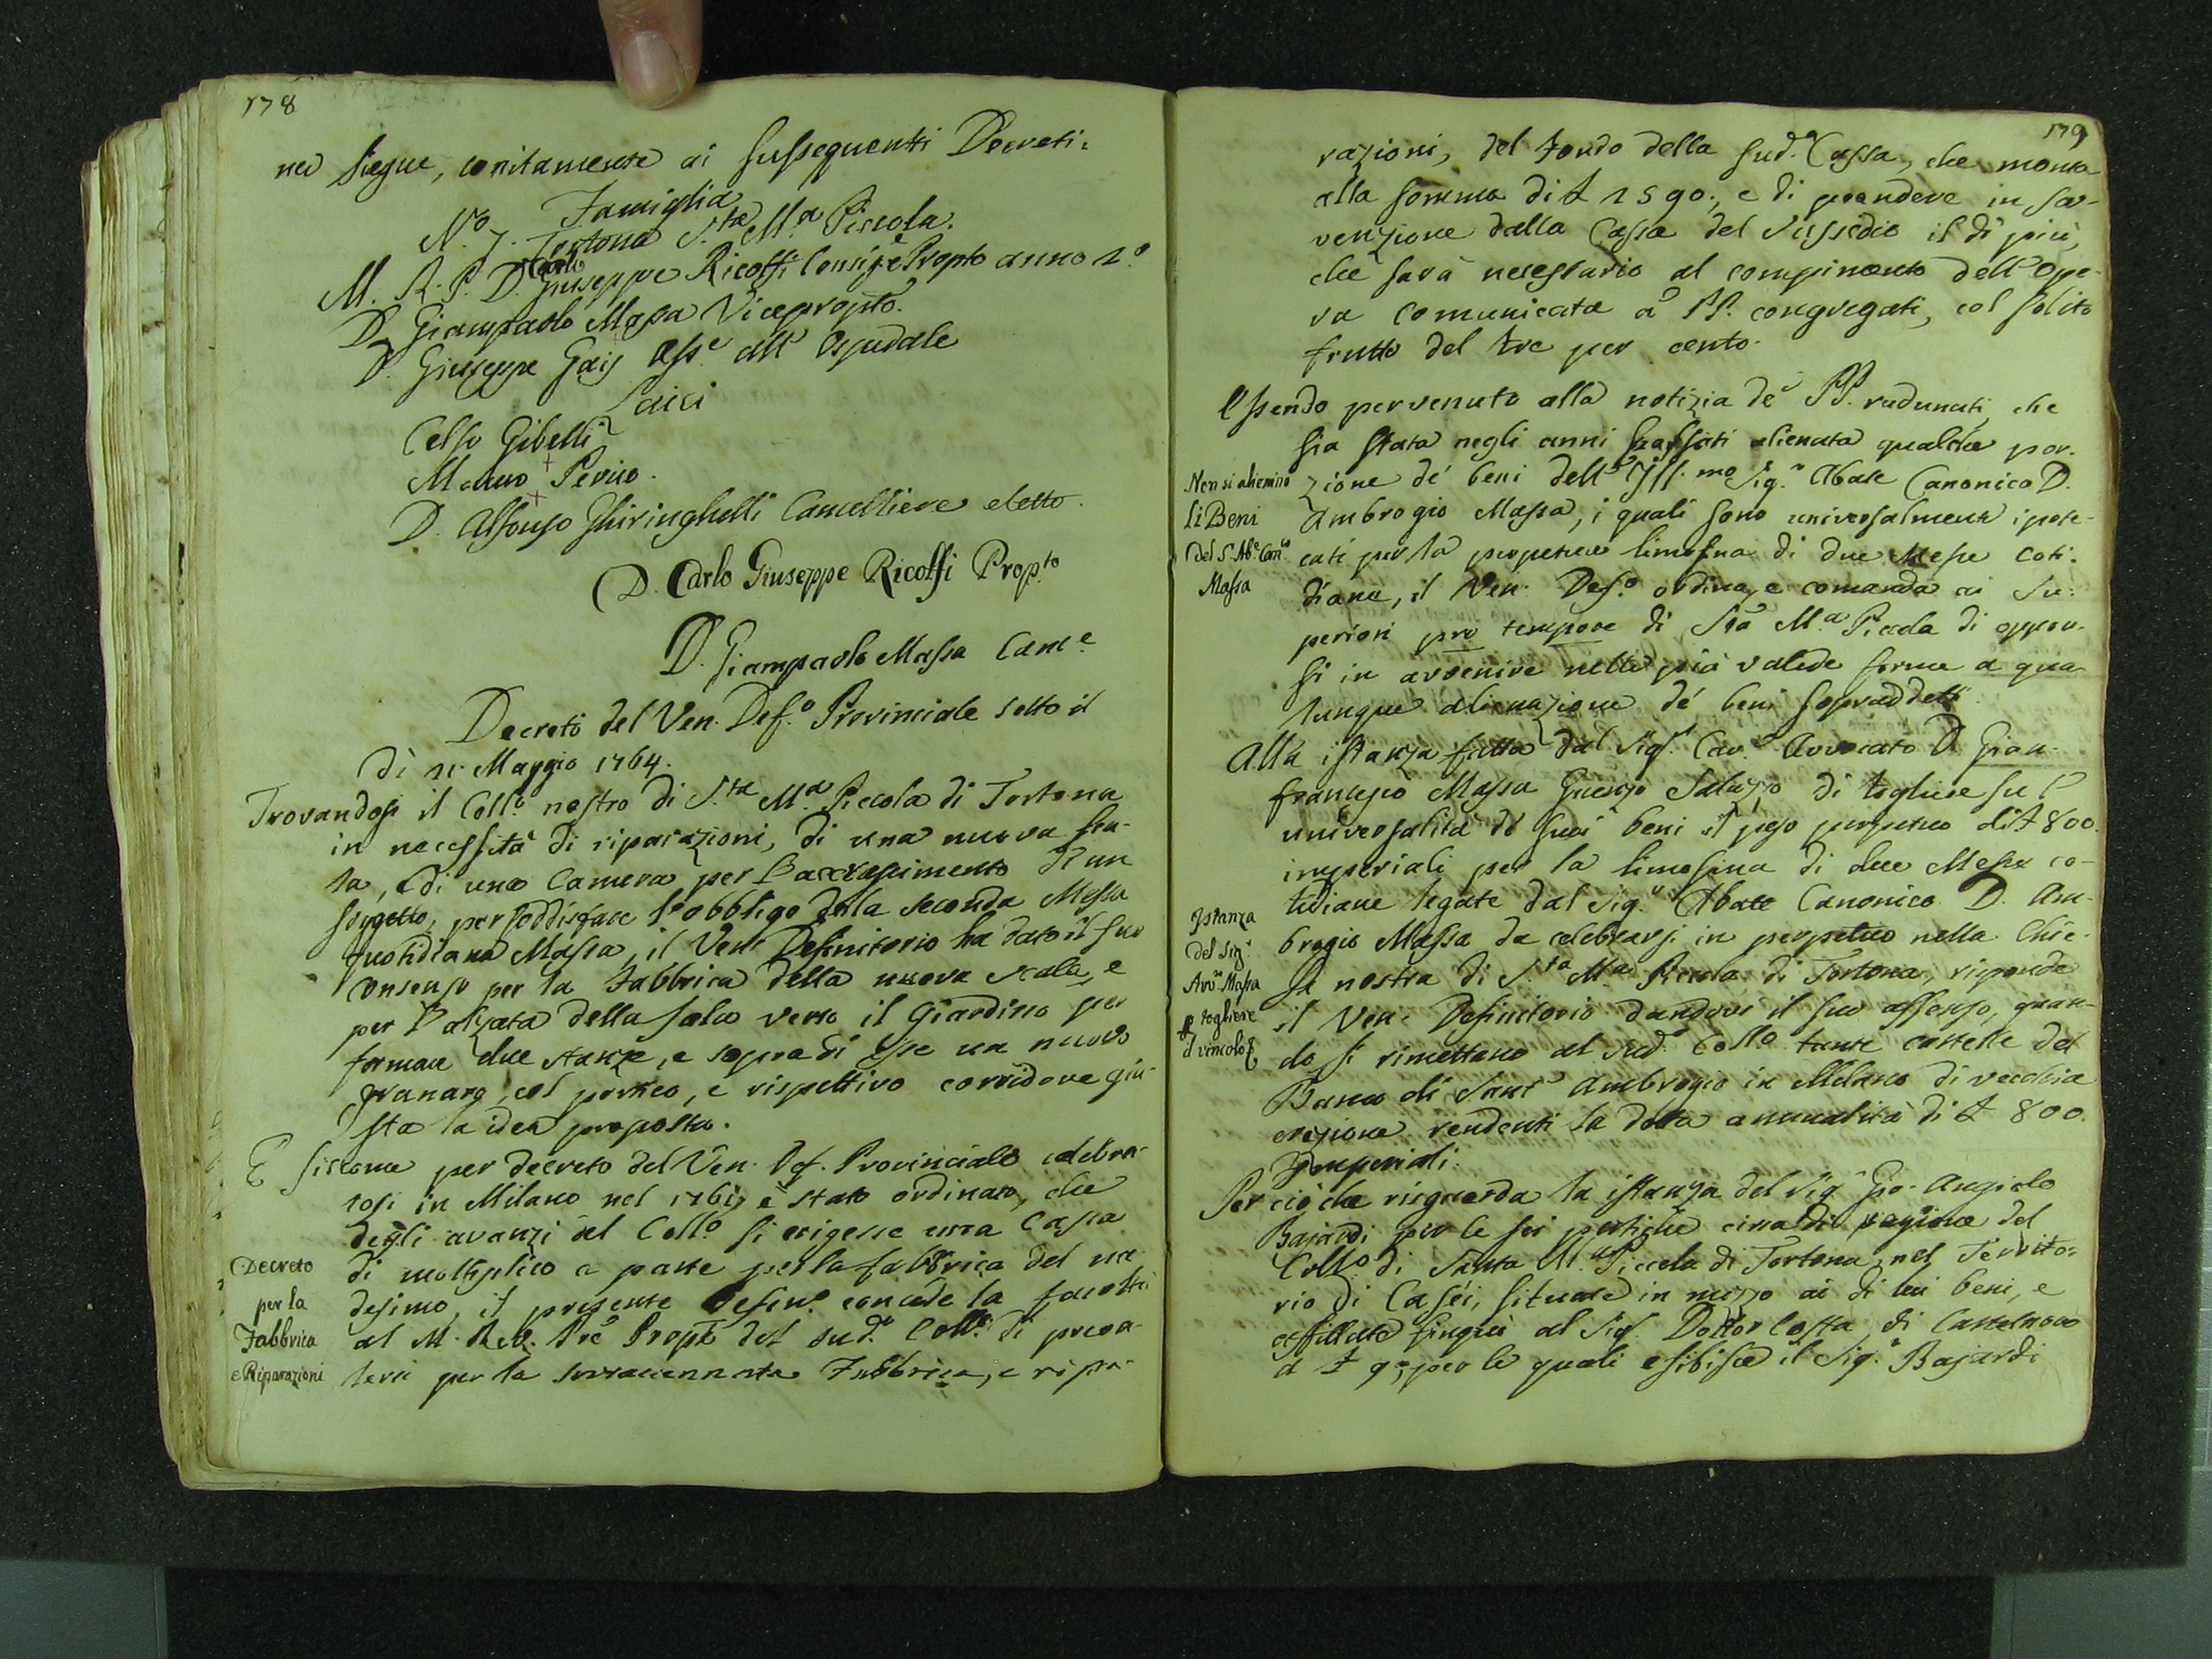 178
ne siegue, conitamente ai susseguenti Decreti.
Famiglia
N.º 7. Tortona S.ta M.a Piccola.
M. R. P. D. Carlo Giuseppe Ricolfi Consig.e Propto anno 2.º
D. Giampaolo Massa Vicepropto.
D. Giuseppe Gaij Ass.e all' Ospedale
Laici
Celso Gibelli
Mauro Perico.
D. Alfonso Ghiringhelli Cancelliere eletto.
D. Carlo Giuseppe Ricolfi Prop.to
D. Giampaolo Massa Canc.e
Decreti del Ven. Def.o Provinciale sotto il
dì 21 Maggio 1764.
Trovandosi il Coll.o nostro di S.ta M.a Piccola di Tortona
in necessità di riparazioni, di una nuova sca-
la, e di una Camera per l'accrescimento d'un
soggetto, per soddisfare l'obbligo della seconda Messa
quotidiana Massa, il Ven. Definitorio ha dato il suo
consenso per la Fabbrica della nuova scala, e
per l'alzata della sala verso il Giardino per
formare due stanze, e sopra di esse un nuovo
granaro, col portico, e rispettivo corridore giu-
sta la idea proposta.
E siccome per decreto del Ven. Def. Provinciale celebra-
tosi in Milano nel 1761 è stato ordinato, che
degli avanzi del Coll.o si erigesse una Cassa
di moltiplico a parte per la fabbrica del me-
desimo, il presente Defin.o concede la facoltà
al M. Rev. Pre Propto del sud.o Coll.o di preva-
lersi per la sovraccennata Fabbrica, e ripa-
Decreto
per la
Fabbrica
e Riparazioni
179
razioni, del Fondo della sud.a Cassa, che monta
alla somma di £ 1590., e di prendere in sov-
venzione dalla Cassa del Sussidio il di più,
che sarà necessario al compimento dell' Ope-
ra comunicata a' PP. congregati, col solito
frutto del tre per cento.
Essendo pervenuto alla notizia de' PP. radunati, che
sia stata negli anni passati alienata qualche por-
zione de' beni dell' Ill.mo Sig.r Abate Canonico D.
Ambrogio Massa, i quali sono universalmente ipote-
cati per la perpetua limosina di due Messe coti-
diane, il Ven. Def.o ordina, e comanda ai Su-
periori pro tempore di Sta M.a Piccola di oppor-
si in avvenire nella più valida forma a qua-
lunque alienazione de' beni sopraddetti.
Non si alienino
li Beni
del S.r Ab.e Can.co
Massa
Alla istanza fatta dal Sig.r Cav.r Avvocato D. Gian-
francesco Massa Saluzzo di togliere su l'
universalità de' suoi beni il peso perpetuo di £ 800.
imperiali per la limosina di due Messe co-
tidiane legate dal Sig.r Abate Canonico D. Am-
brogio Massa da celebrarsi in perpetuo nella Chie-
sa nostra di S.ta M.a Piccola di Tortona, risponde
il Ven. Definitorio dandovi il suo assenso, quan-
do si rimettano al sud.o Coll.o tante cartelle del
Banco di Sant' Ambrogio in Milano di vecchia
erezione rendenti la detta annualità di £ 800.
Imperiali.
Istanza
del Sig.r
Avv.o Massa
p togliere
il vincolo
Per ciò che risguarda la istanza del Sig.r Gio. Angiolo
Bajardi per le sei pertiche circa di ragione del
Coll.o di Santa M.a Piccola di Tortona nel Territo-
rio di Caséi, situate in mezzo ai di lui beni, e
affittate finquì al Sig.r Dottor Costa di Castelnovo
a £ 9., per le quali esibisce il Sig.r Bajardi